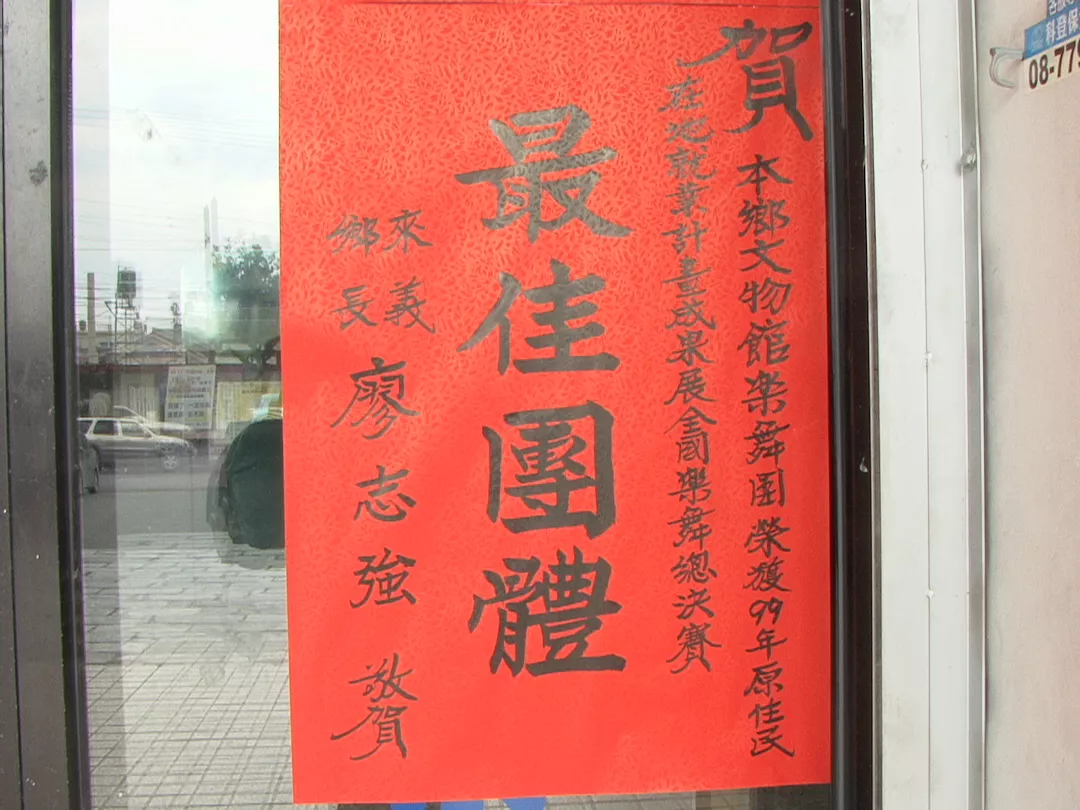 賀
本鄉文物館楽舞團榮獲99年原住民
在地就業計畫成果展全國樂舞總決賽
最佳團體
來義
鄉長
廖志強
敬賀
科登保
08-779